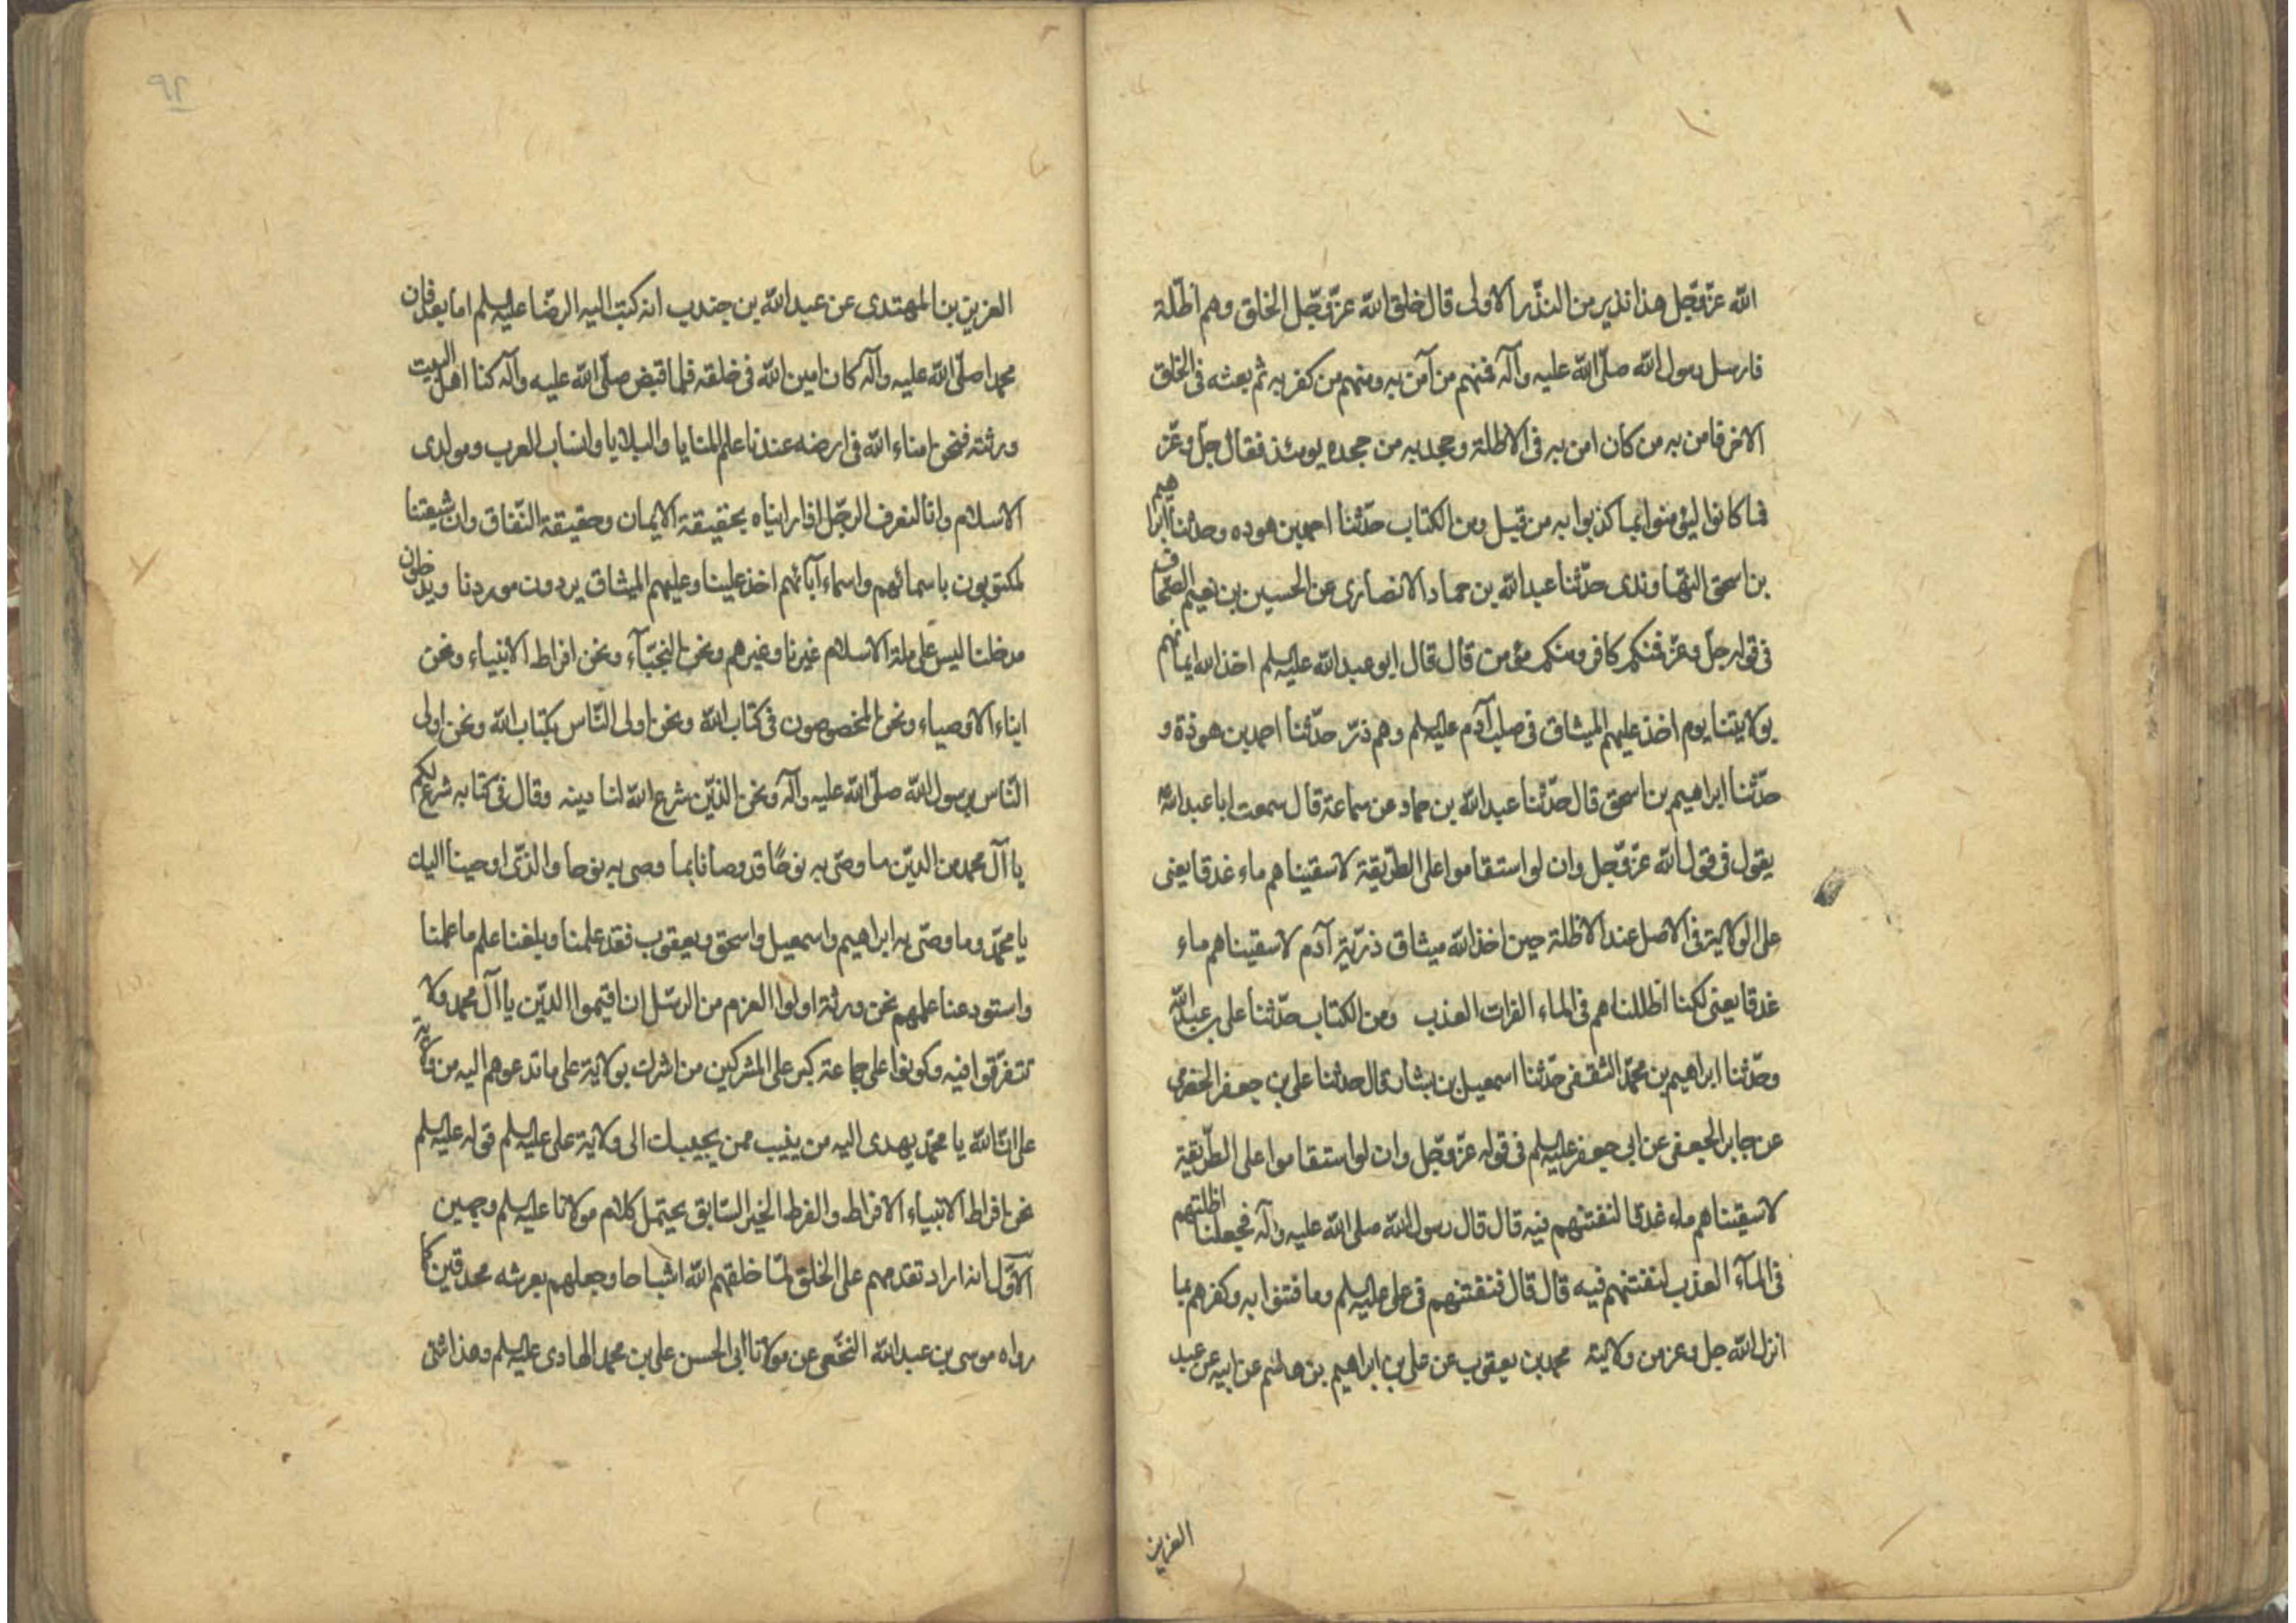 الله عزّ وجّل هذا نذير من النذّر الاولى قال خلق الله عزّ وجّل الخلق وهم اظلّة
فارسل رسول الله صلّى الله عليه وآله فمنهم من آمن به ومنهم من كفر به ثم بعثه فى الخلق
الاخر فامن به من كان امن به فى الاظلة وجحد به من جحده يومئذ فقال جلّ وعّز
فما كانوا ليؤمنوا بما كذبوا به من قبل ومن الكتاب حدّثنا احمد بن هوده وحدثنا ابراهيم
بن اسحق النهاوندى حدّثنا عبد الله بن حماد الانصارى عن الحسين بن نعيم الصحّاف
فى قوله جلّ وعزّ فمنكم كافر ومنكم مؤمن قال قال ابو عبد الله عليه السلم اخذ الله ايمانهم
بولايتنا يوم اخذ عليهم الميثاق فى صلب آدم عليه السلم وهم ذرّ حدّثنا احمد بن هوذة و
حدّثنا ابراهيم بن اسحق قال حدّثنا عبد الله بن حماد عن سماعة قال سمعت ابا عبد الله
يقول فى قول الله عزّ وجّل وان لو استقاموا على الطرّيقة لاسقيناهم ماء غدقا يعنى
على الولاية فى الاصل عند الاظلة حين اخذ الله ميثاق ذرّية آدم لاسقيناهم ماء
غدقا يعنى لكنا اظللناهم فى الماء الفرات العذب ومن الكتاب حدّثنا على بن عبد الله
وحدّثنا ابراهيم بن محمّد الثقفى حدّثنا اسمعيل بن بشار قال حدثنا على بن جعفر الحضرمى
عن جابر الجعفى عن ابى جعفر عليه السلم فى قوله عزّ وجّل وان لو استقاموا على الطرّيقة
لاسقيناهم ماء غدقا لنفتنهم فيه قال قال رسول الله صلى الله عليه وآله فجعلنا اظلتهم
فى المآء العذب لنفتنهم فيه قال قال فنفتنهم فى على عليه السلم وما فتنوا به وكفرهم بما
انزل الله جل وعز من ولايته محمد بن يعقوب عن على بن ابراهيم بن هاشم عن ابيه عن عبد
العزيز
٩٢
العزيز بن المهتدى عن عبد الله بن جندب انه كتب اليه الرضّا عليه السلم اما بعد فان
محمدا صلّى الله عليه وآله كان امين الله فى خلقه فلما قبض صلّى الله عليه وآله كنا اهل البيت
ورثته فنحن امناء الله فى ارضه عندنا علم المنايا والبلايا وانساب العرب ومولدى
الاسلام وانا لنعرف الرجّل اذا رايناه بحقيقة الايمان وحقيقة النّفاق وان شيعتنا
لمكتوبون باسمائهم واسماء آبائهم اخذ علينا وعليهم الميثاق يردون موردنا ويدخلون
مدخلنا ليس على ملة الاسلام غيرنا وغيرهم ونحن النجبآء ونحن افراط الانبياء ونحن
ابناء الاوصياء ونحن المخصوصون فى كتاب الله ونحن اولى النّاس بكتاب الله ونحن اولى
النّاس برسول الله صلّى الله عليه وآله ونحن الذّين شرع الله لنا دينه وقال فى كتابه شرع لكم
يا آل محمد من الديّن ما وصّى به نوحًا قد وصانا بما وصى به نوحا والذىّ اوحينا اليك
يا محمّد وما وصّى به ابراهيم واسمعيل واسحق ويعقوب فقد علمنا وبلغنا علم ما علمنا
واستودعنا علمهم نحن ورثة اولوا العزم من الرسّل ان اقيموا الديّن يا آل محمد ولا
تتفرّقوا فيه وكونوا على جماعة كبر على المشركين من اشرك بولاية على ما تدعوهم اليه من ولاية
على ان الله يا محمّد يهدى اليه من ينيب ممن يجيبك الى ولاية على عليه السلم قوله عليه السلم
نحن افراط الانبياء الافراط والفرط الخير السّابق يحتمل كلام مولانا عليه السلم وجهين
الاوّل انه اراد تقدمهم على الخلق لمّا خلقهم الله اشباحا وجعلهم بعرشه محدقين كما
رواه موسى بن عبد الله النخّعى عن مولانا ابى الحسن على بن محمد الهادى عليه السلم وهذا